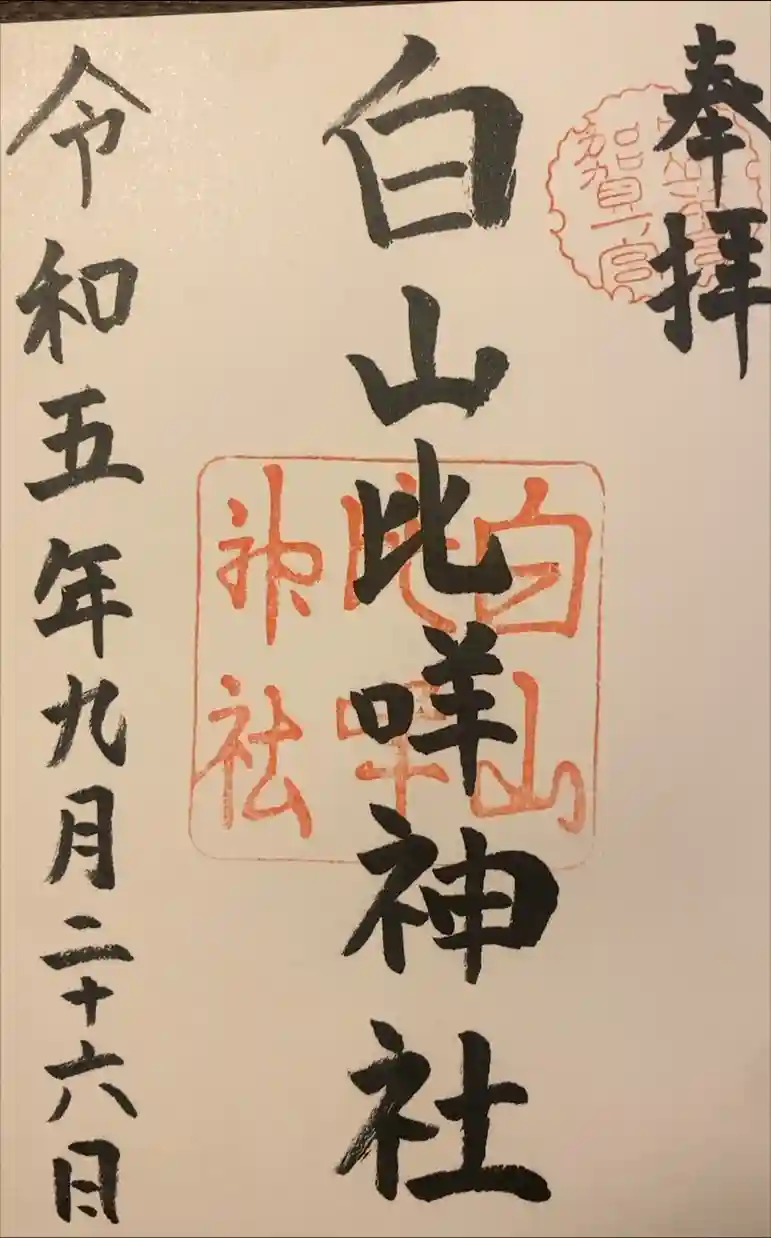 奉拝
加賀一宮
白山比咩神社
白山
比咩
神社
令和五年九月二十六日